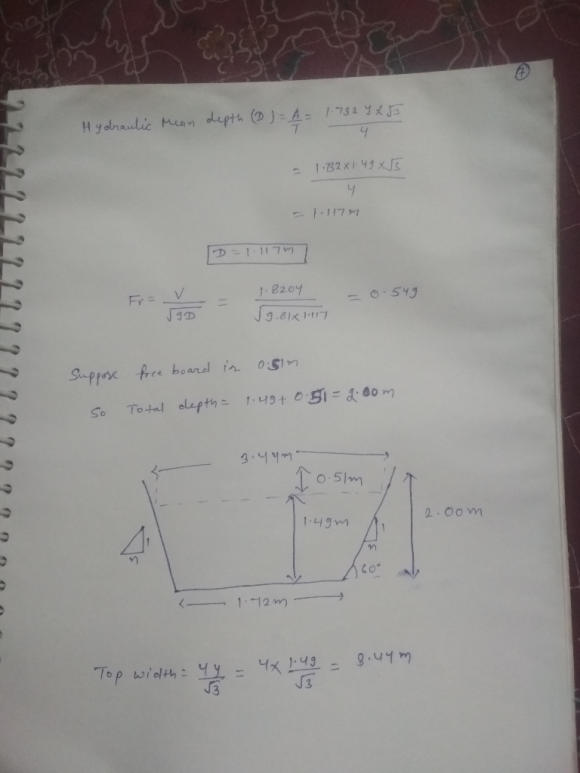 7
Hydraulic mean depth (D) = A/T = 1.732 y x √3 / 4
= 1.732 x 1.49 x √3 / 4
= 1.117 m
D = 1.117 m
Fr = V / √gD = 1.8204 / √9.81 x 1.117 = 0.549
Suppose free board is 0.51m
So Total depth = 1.49 + 0.51 = 2.00 m
3.44m
0.51m
1 1.49m 1 2.00m
n n
60°
1.72m
Top width = 4y/√3 = 4 x 1.49/√3 = 3.44 m